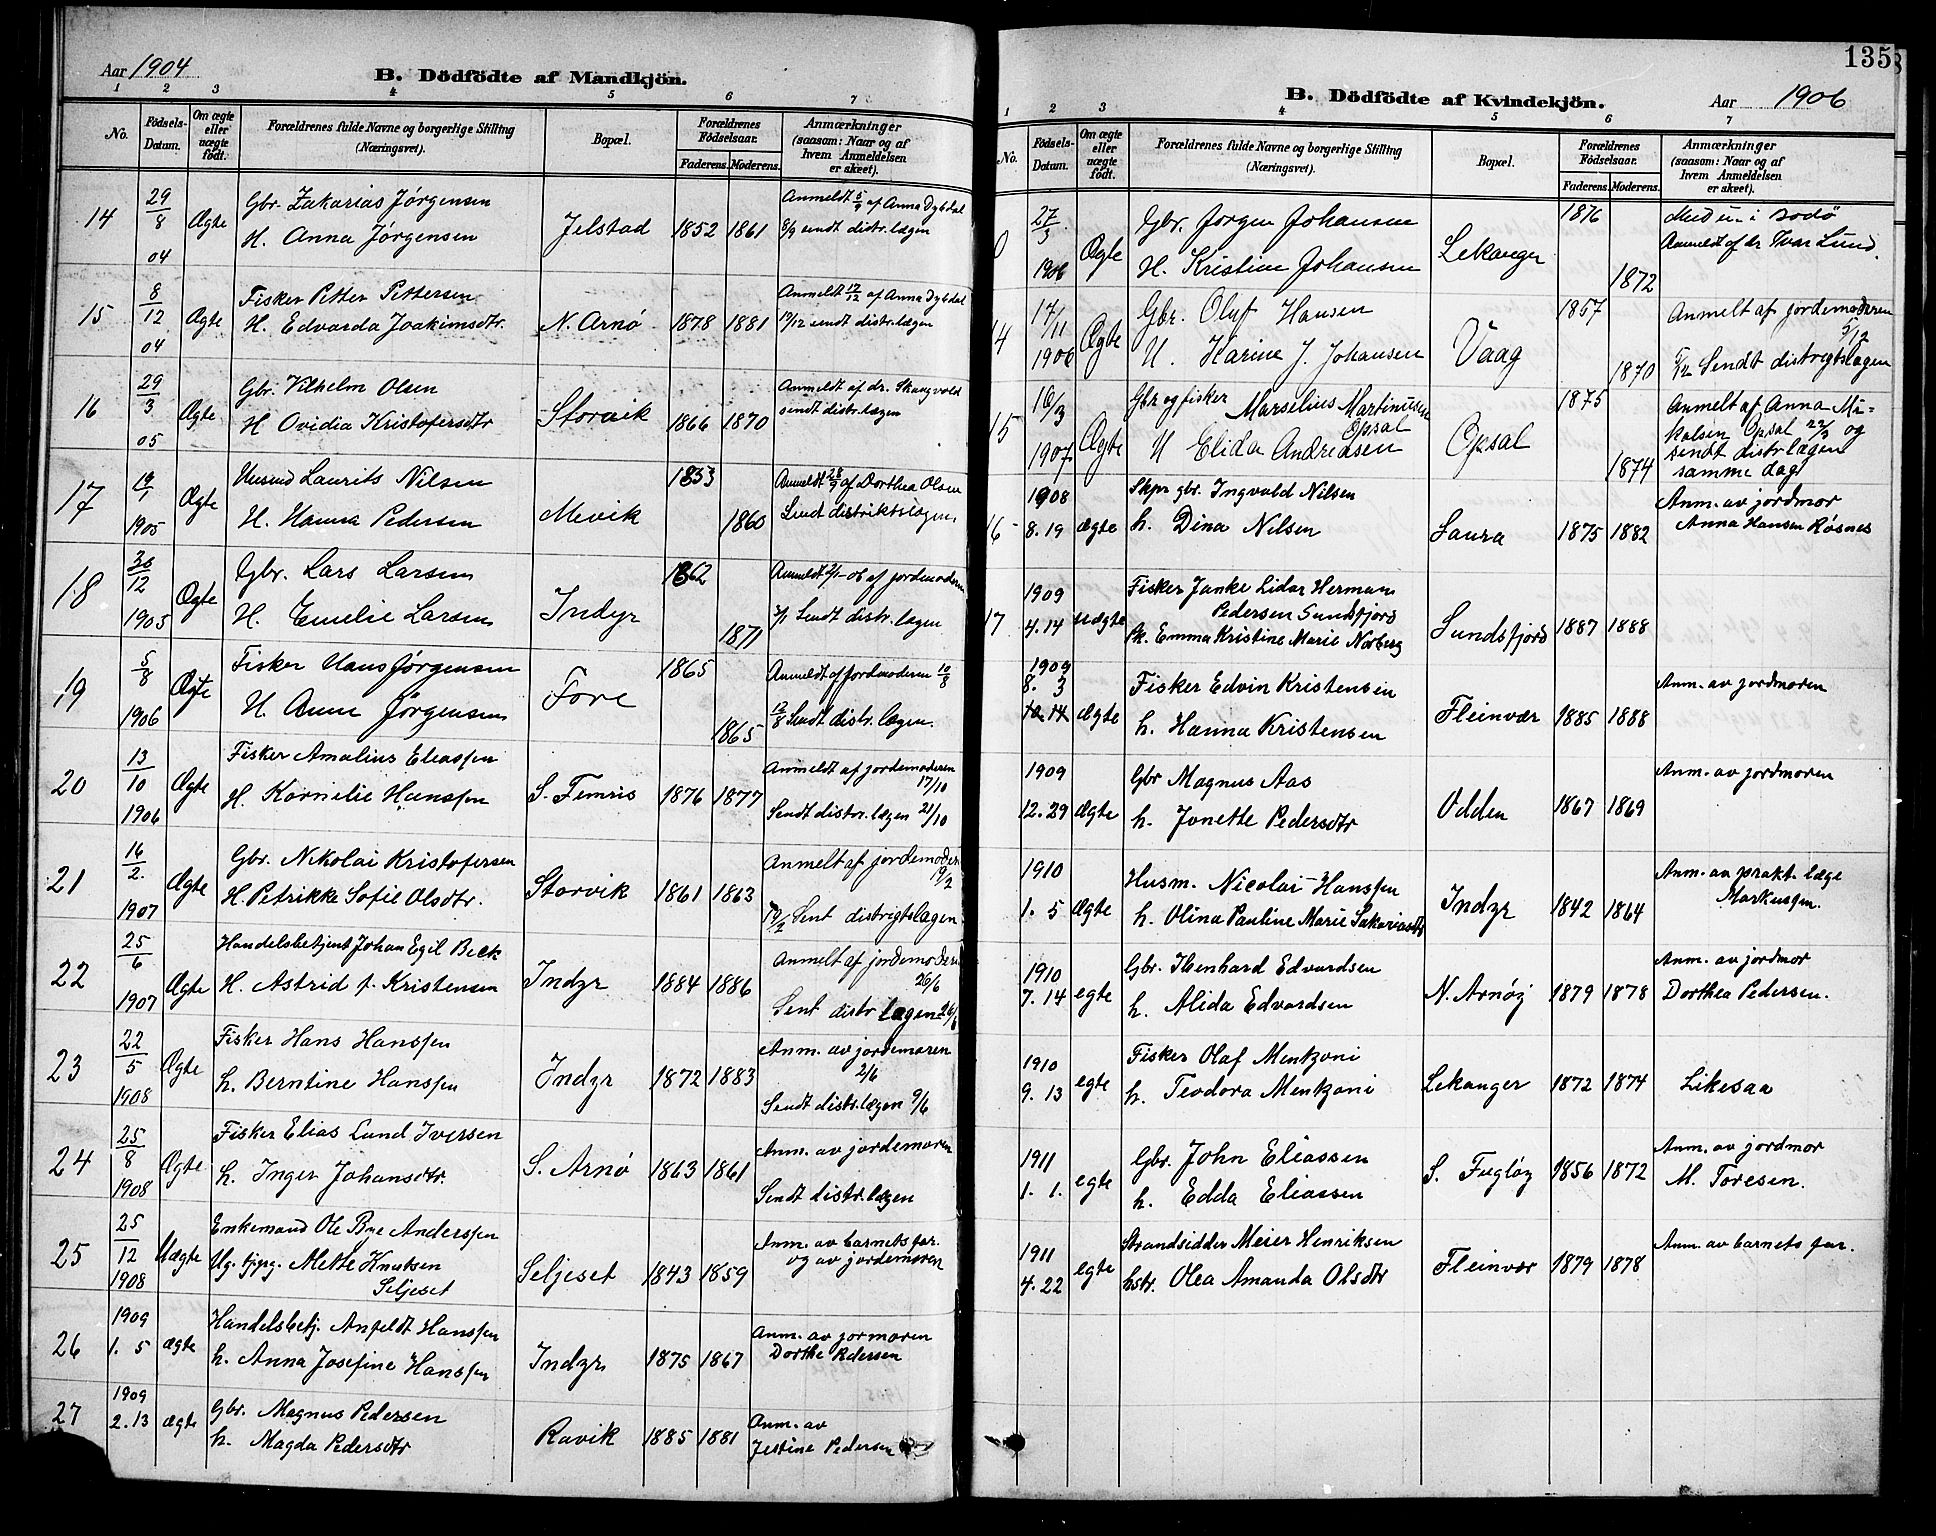 Aar 1904
B. Dödfödte af Mandkjön.
1 2 3 4 5 6 7
No.
Födsels-Datum.
Om ægte eller uægte födt.
Forældrenes fulde Navne og borgerlige Stilling (Næringsvei).
Bopæl.
Forældrenes Födselsaar.
Faderens. Moderens.
Anmærkninger (saasom: Naar og af hvem Anmeldelsen er skeet).
14 29/8 04 Ægte Gbr. Zakarias Jörgensen
H. Anna Jörgensen Jelstad 1852 1861 Anmeldt 5/9 af Anna Dybdal
8/9 sendt distr. lægen
15 8/12 04 Ægte Fisker Petter Pettersen
H. Edvarda Joakimsdtr. N. Arnö 1878 1881 Anmeldt 17/12 af Anna Dybdal
19/12 sendt distr. lægen
16 29/3 05 Ægte Gbr. Vilhelm Olsen
H Ovidia Kristofersdtr Storvik 1866 1870 Anmeldt af dr. Skaugvold
sendt distr. lægen
17 1905 Ægte Laurits Nilsen
H. Hanna Pedersen Mevik 1853 1860 Anmeldt af Dorthea Olsen
Sendt distriktslægen
18 30/12 1905 Ægte Gbr. Lars Larsen
H. Emelie Larsen Indyr 1862 1871 Anmeldt 2/1-06 af jordemoderen
Sendt distr. lægen
19 5/8 1906 Ægte Fisker Hans Jörgensen
H. Anne Jörgensen Fore 1865 1865 Anmeldt af Jordmoderen 10/8
12/8 Sendt distr. lægen.
20 13/10 1906 Ægte Fisker Amalius Eliassen
H. Kornelie Hanssen S. Femris 1876 1877 Anmeldt af jordemoderen 17/10
Sendt distr. lægen 21/10
21 16/2. 1907 Ægte Gbr. Nikolai Kristofersen
H. Petrikke Sofie Olsdtr. Storvik 1861 1863 Anmelt af jordemoder 19/2
19/2 Sent distrigtslægen
22 25/6 1907 Ægte Handelsbetjent Johan Egil Beck
H. Astrid f. Kristensen Indyr 1884 1886 Anmelt af jordemoder 26/6
Sent distr lægen 26/6
23 22/5 1908 Ægte Fisker Hans Hanssen
h. Berntine Hanssen Indyr 1872 1883 Anm. av jordemoren 2/6
Sendt distr. lægen 9/6
24 25/8 1908 Ægte Fisker Elias Lund Iversen
h. Inger Johansdtr. S. Arnö 1863 1861 Anm. av jordemoren
Sendt distr. lægen
25 25/12 1908 Uægte Enkemand Ole Bye Anderssen
Ug. tjpg. Mette Knutsen
Seljeset Seljeset 1843 1859 Anm. av barnets far.
og av jordemoren
26 1909 1. 5 ægte Handelsbetj. Anfeldt Hanssen
h. Anna Josefine Hanssen Indyr 1875 1867 Anm. av jormoren
Dorthe Pedersen
27 1909 2. 13 ægte Gbr. Magnus Pedersen
h. Magda Pedersdtr Ravik 1885 1881 Anm. av
Jestine Pedersen
135
B. Dödfödte af Kvindekjön.
Aar 1906
1 2 3 4 5 6 7
No.
Födsels-Datum.
Om ægte eller uægte födt.
Forældrenes fulde Navne og borgerlige Stilling (Næringsvei).
Bopæl.
Forældrenes Födselsaar.
Faderens. Moderens.
Anmærkninger (saasom: Naar og af hvem Anmeldelsen er skeet).
27/3 1906 Ægte Gbr. Jörgen Johansen
H. Kristine Johansen Lekanger 1876 1872 i Bodö
Anmeldt af dr. Ivar Lund.
4 17/11 1906 Ægte Gbr. Oluf Hansen
H. Karine J. Johansen Vaag 1857 1870 Anmelt af jordemoderen 5/12
5/12 Sendt distrigtslægen
15 16/3 1907 Ægte Gbr og fisker Marselius Martinusen
Opsal
H Elida Andreasen Opsal 1875 1874 Anmelt af Anna Mi-
kalsen Opsal 22/3 og
sendt distr lægen
samme dag
16 1908 8. 19 ægte Skpr gbr. Ingvald Nilsen
h. Dina Nilsen Saura 1875 1882 Anm. av jordmor
Anna Hansen Røsnes
17 1909 4. 14 uægte Fisker Janke Lidar Herman
Pedersen Sundsfjord
Pk. Emma Kristine Marie Norberg Sundsfjord 1887 1888
1909 8. 3 10. 14 ægte Fisker Edvin Kristensen
h. Hanna Kristensen Fleinvær 1885 1888 Anm. av jordmoren
1909 12. 29 ægte Gbr Magnus Aas
h. Jonette Pedersdtr Odden 1867 1869 Anm. av jordmoren
1910 1. 5 ægte Husm. Nicolai Hanssen
h. Olina Pauline Marie Sakariasdtr Indyr 1842 1864 Anm. av prakt. læge
Markussen.
1910 7. 14 egte Gbr. Ilenhard Edvardsen
h. Alida Edvardsen N. Arnöy 1879 1878 Anm. av jordmor
Dorthea Pedersen.
1910 9. 13 egte Fisker Olaf Mentzoni
h. Teodora Mentzoni Lekanger 1872 1874 Likesaa
1911 1. 1. egte Gbr. John Eliassen
h. Edda Eliassen S. Fuglöy 1856 1872 Anm. av jordmor
M. Toresen.
1911 4. 22 egte Strandsidder Meier Henriksen
hstr. Olea Amanda Olsdtr Fleinvær 1879 1878 Anm. av barnets far.